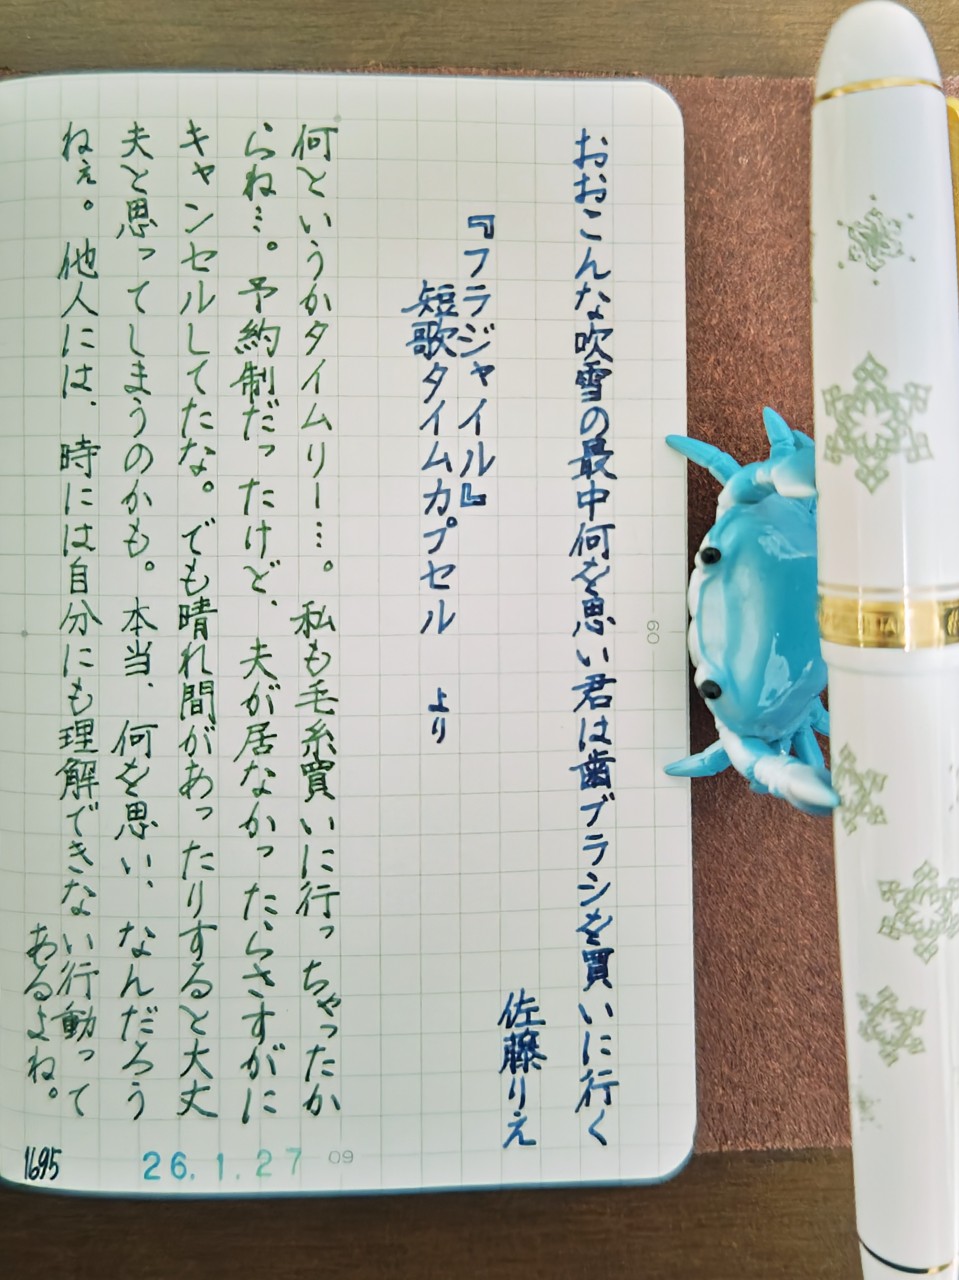 おおこんな吹雪の最中何を思い君は歯ブラシを買いに行く
佐藤りえ
『フラジャイル』
短歌タイムカプセル より
何というかタイムリー…。私も毛糸買いに行っちゃったか
らね…。予約制だったけど、夫が居なかったらさすがに
キャンセルしてたな。でも晴れ間があったりすると大丈
夫と思ってしまうのかも。本当、何を思い、なんだろう
ねぇ。他人には、時には自分にも理解できない行動って
あるよね。
1695
26.1.27
09
60